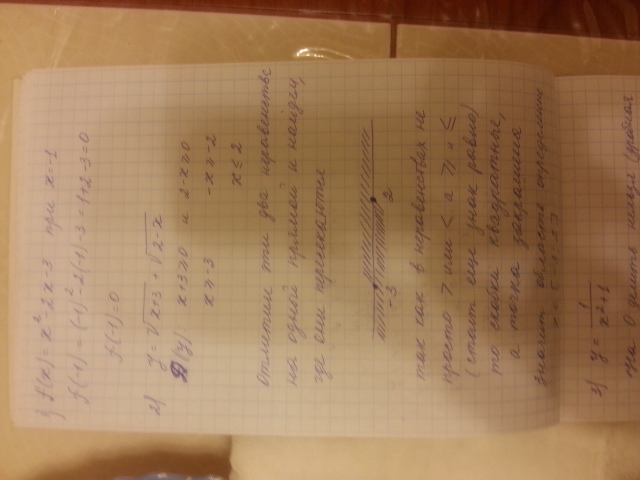 1) f(x) = x² - 2x - 3 при x = -1
f(-1) = (-1)² - 2(-1) - 3 = 1 + 2 - 3 = 0
f(-1) = 0
2) y = √x+3 + √2-x
D(y): x+3 ≥ 0 и 2-x ≥ 0
x ≥ -3 -x ≥ -2
x ≤ 2
Отметим эти два неравенства
на одной прямой и найдем,
где они пресекаются
-3 2
так как в неравенствах не
просто > или < а ≥ и ≤
(стоит еще знак равно)
то скобки квадратные,
а точка закрашена
значит область определения
x ∈ [-3; 2]
3) y = 1/x²+1
на 0 делить нельзя